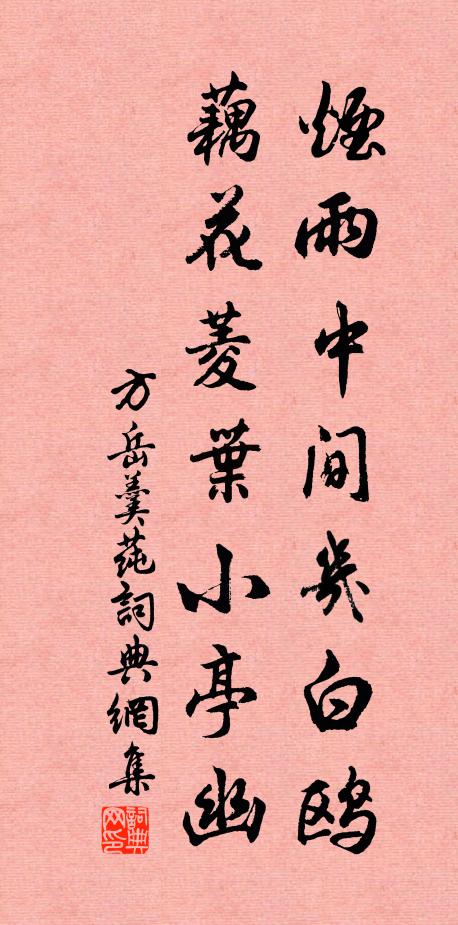 煙雨中間幾白鷗
藕花菱葉小亭幽
方岳羹蒓詞典網集
詞典网印